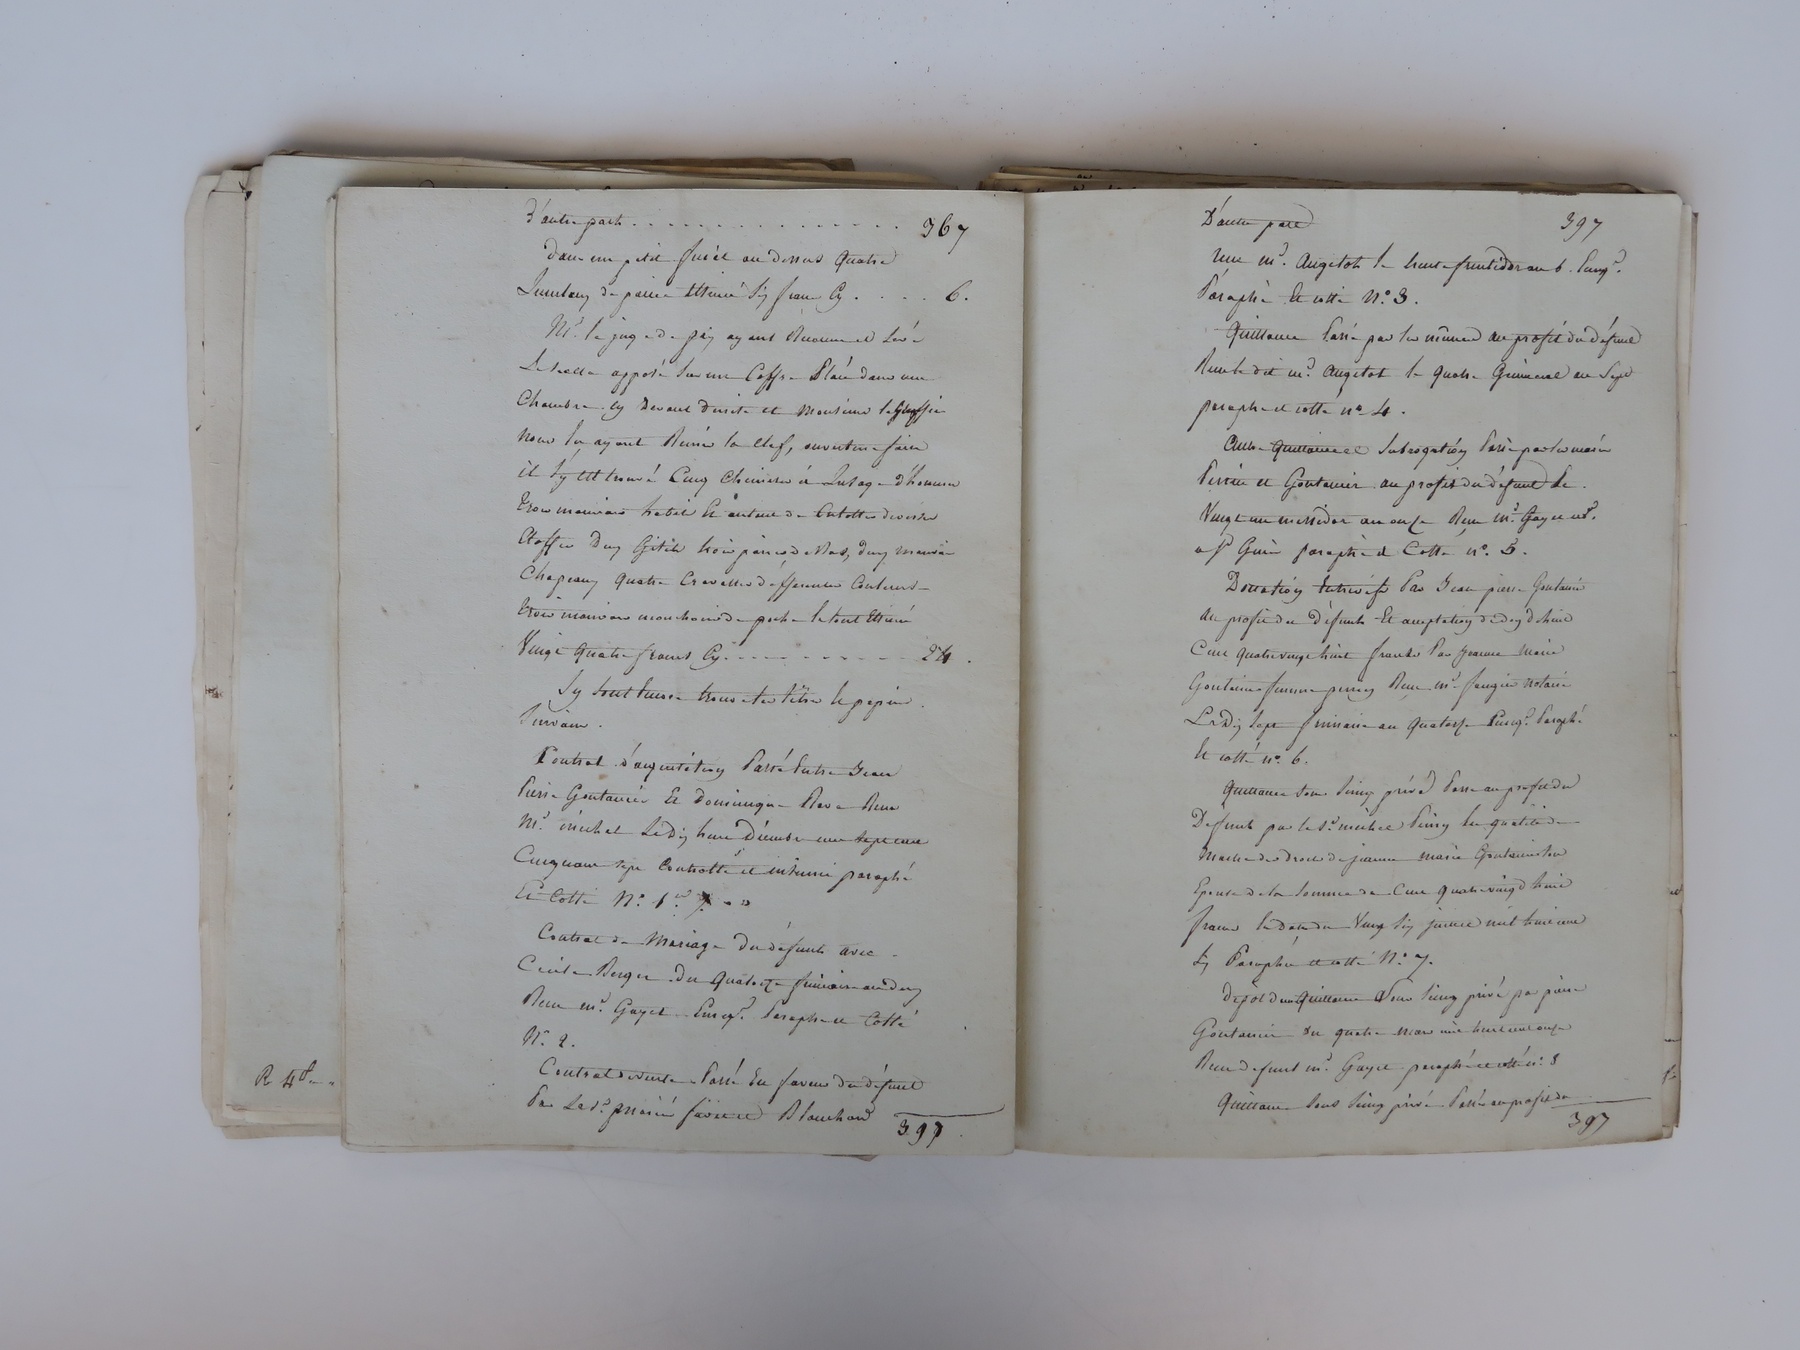 D'autre part . . . . . . . . . . . . . . 367
Dans un petit au dessus quatre
de paille Estimé six francs Cy . . . . 6.
Mr. le juge de paix ayant Reconnu et Levé
Le scellé apposé sur un Coffre Placé dans une
Chambre cy devant ditte et Monsieur le Greffier
nous en ayant Remis la Clef, ouverture faite
il s'y est trouvé Cinq Chemises à Lusage d'homme
trois mauvais habit Et autant de Culottes diverses
Etoffes Deux Gilets trois paires de Bas, deux mauvais
Chapeaux quatre Cravattes differentes Couleurs
trois mauvais mouchoirs de poche le tout Estimé
Vingt quatre francs Cy . . . . . . . . . . 24.
S'y sont Encore trouvé les titres et papiers
Suivants.
Contrat d'acquisition Passé Entre Jean
Pierre Goutanier Et Dominique Reçu
Mr. michel Le dix huit Décembre mil sept cent
Cinquante sept Controllé et insinué paraphé
Et Cotté No. 1er
Contrat de Mariage du défunt avec
Cécile Berger du quatorze frimaire an deux
Reçu mr. Gayet Enregt. Paraphé et Cotté
No. 2.
Contrat de vente Passé En faveur du défunt
Par Le sr. Blanchard
397
R 4
D'autre part 397
Reçu mr. Augetot le trente fructidor an 6. Enregt.
Paraphé Et cotté No. 3.
Quittance Passé par les mêmes au profit du défunt
Reçu le dit mr. Augetot le quatre Germinal an Sept
paraphé et cotté no. 4.
Autre quittance et Subrogation Passé par les mariés
Perrin et Goutanier au profit du défunt Le
Vingt un messidor an onze Reçu mr. Gayet
paraphé et Cotté no. 5.
Donation Entre vifs Par Jean pierre Goutanier
au profit du défunt Et acceptation
Cent quatre vingt huit francs Par Jeanne Marie
Goutanier femme Reçu mr. notaire
Le Dix Sept frimaire an quatorze Enregt. Paraphé
Et cotté no. 6.
Quittance sous Seing privé Passé au profit du
Defunt par le Sr. michel En qualité de
Maitre des droits de jeanne marie Goutanier Son
Epouse de la Somme de Cent quatre vingt huit
francs le datte du Vingt Six janvier mil huit cent
Six Paraphé et cotté No. 7.
Dépôt d'une quittance Sous Seing privé par pierre
Goutanier du quatre Mars mil huit cent onze
Reçu defunt mr. Gayet paraphé et cotté no. 8
Quittance Sous Seing privé Passé au profit du
397